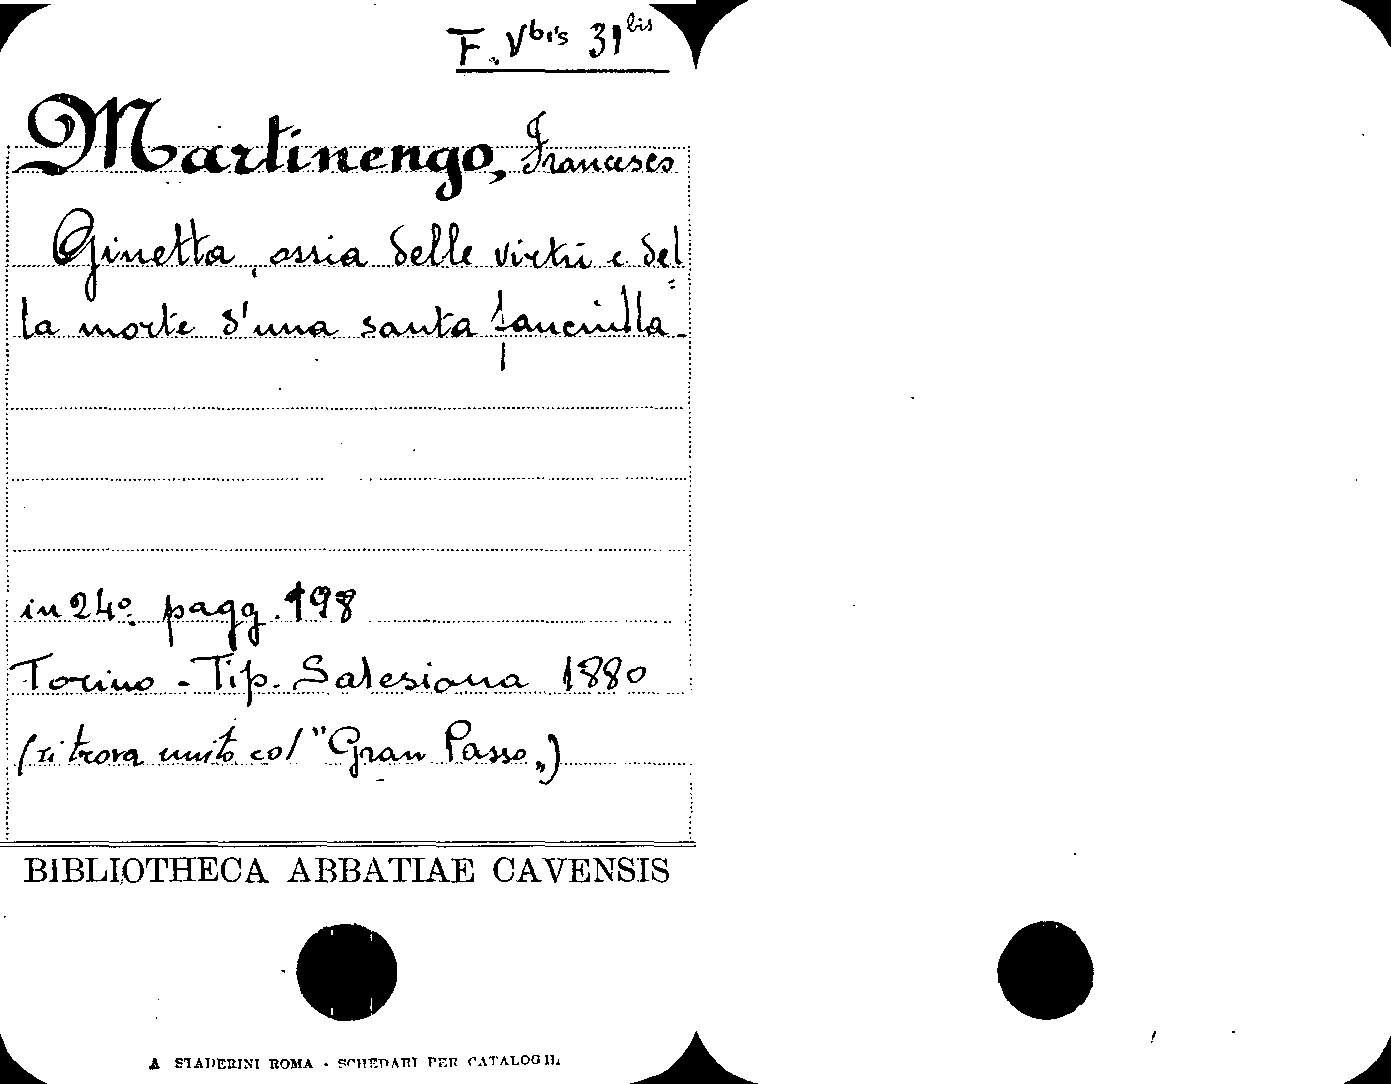 F. V bis 31 bis
Martinengo, Francesco
Ginetta, ossia delle virtù e del=
la morte d'una santa fanciulla.
in 24º. pagg. 198
Torino - Tip. Salesiana 1880
(si trova unito col "Gran Passo„)
BIBLIOTHECA ABBATIAE CAVENSIS
A STADERINI ROMA - SCHEDARI PER CATALOGHI.